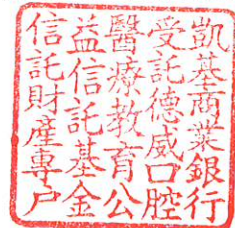 凱基商業銀行
受託德威口腔
醫療教育公
益信託基金
信託財產專户